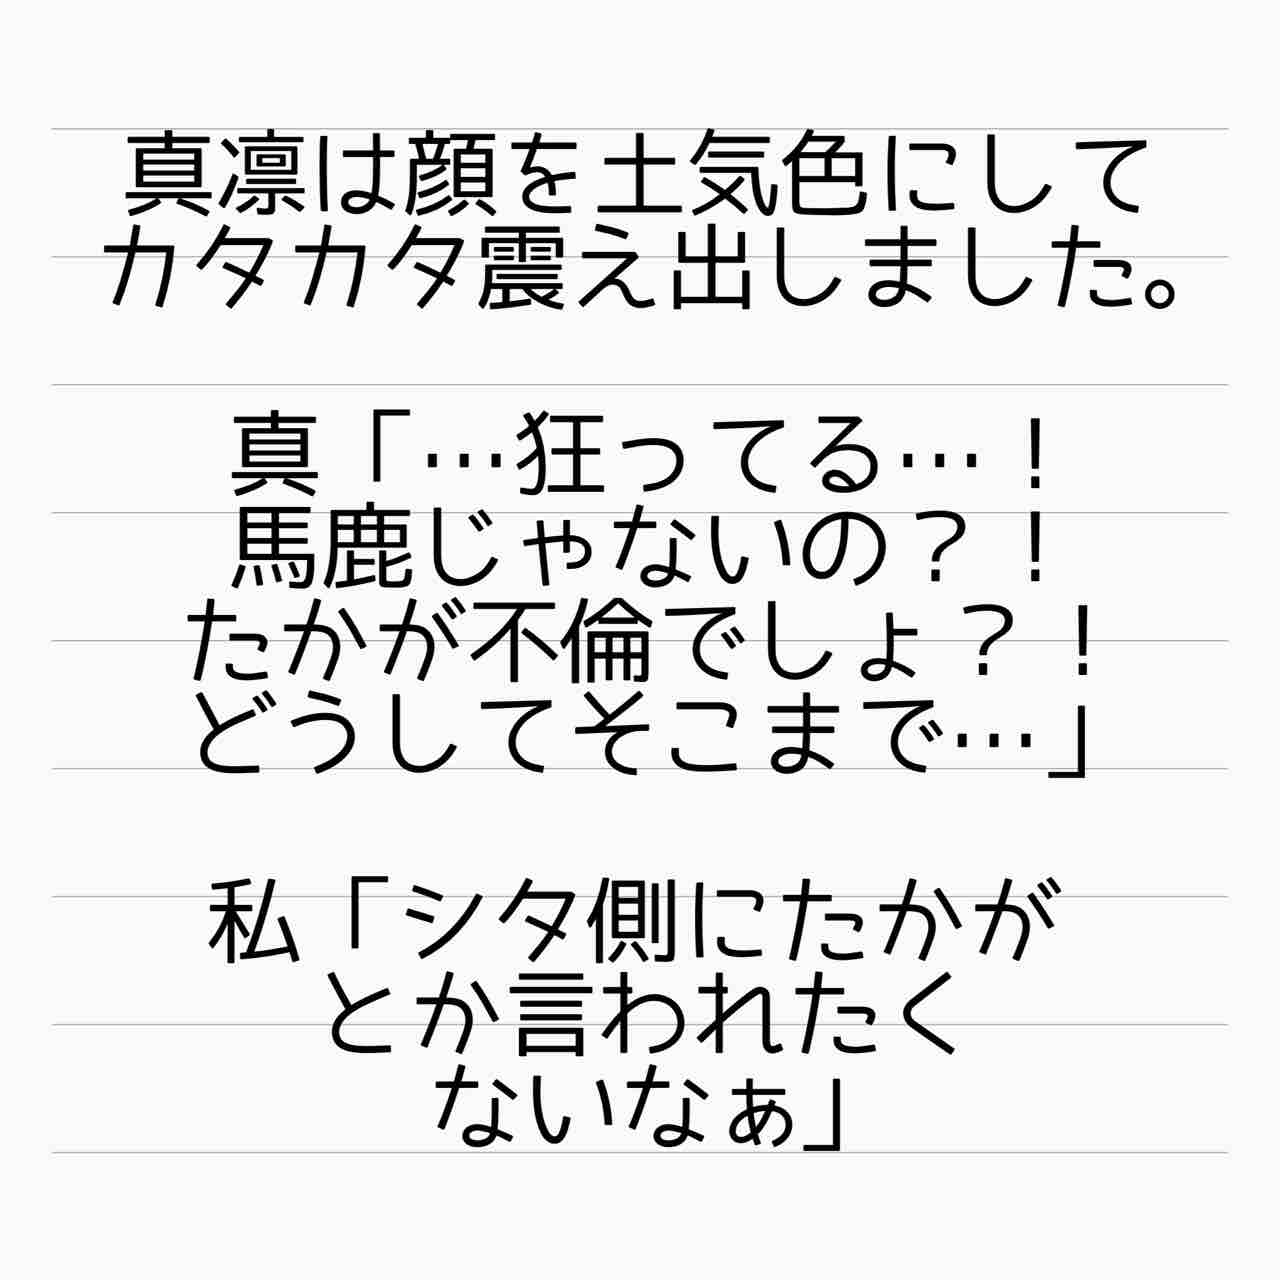 真凛は顔を土気色にして
カタカタ震え出しました。
真「…狂ってる…！
馬鹿じゃないの？！
たかが不倫でしょ？！
どうしてそこまで…」
私「シタ側にたかが
とか言われたく
ないなぁ」